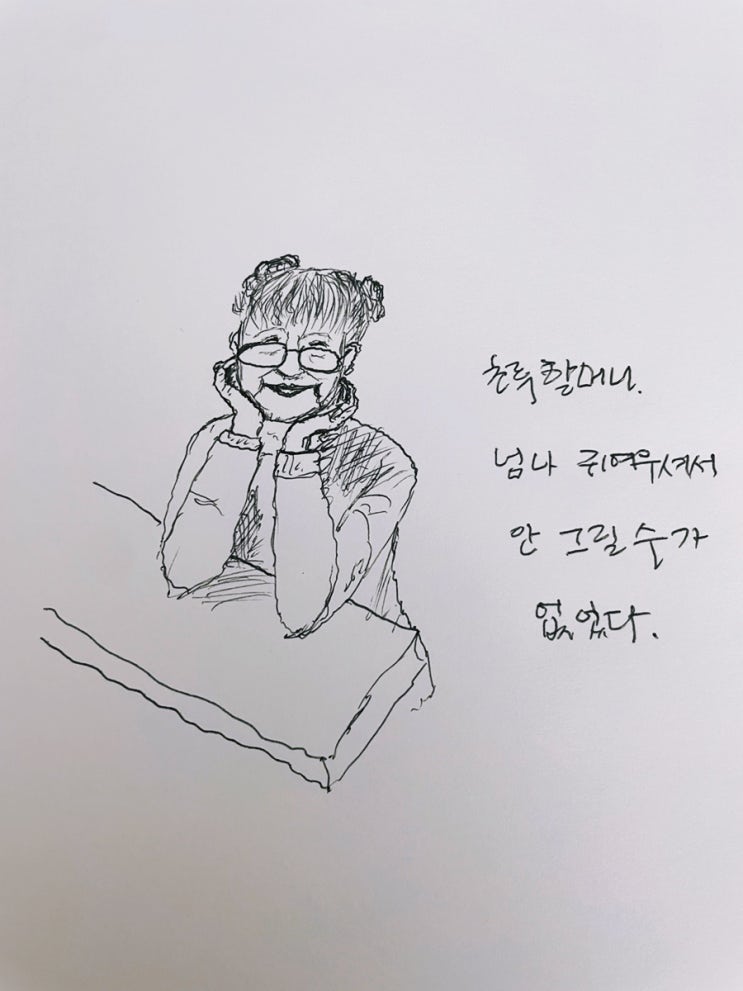 초록할머니.
넘나 귀여우셔서
안 그릴 수가
없었다.